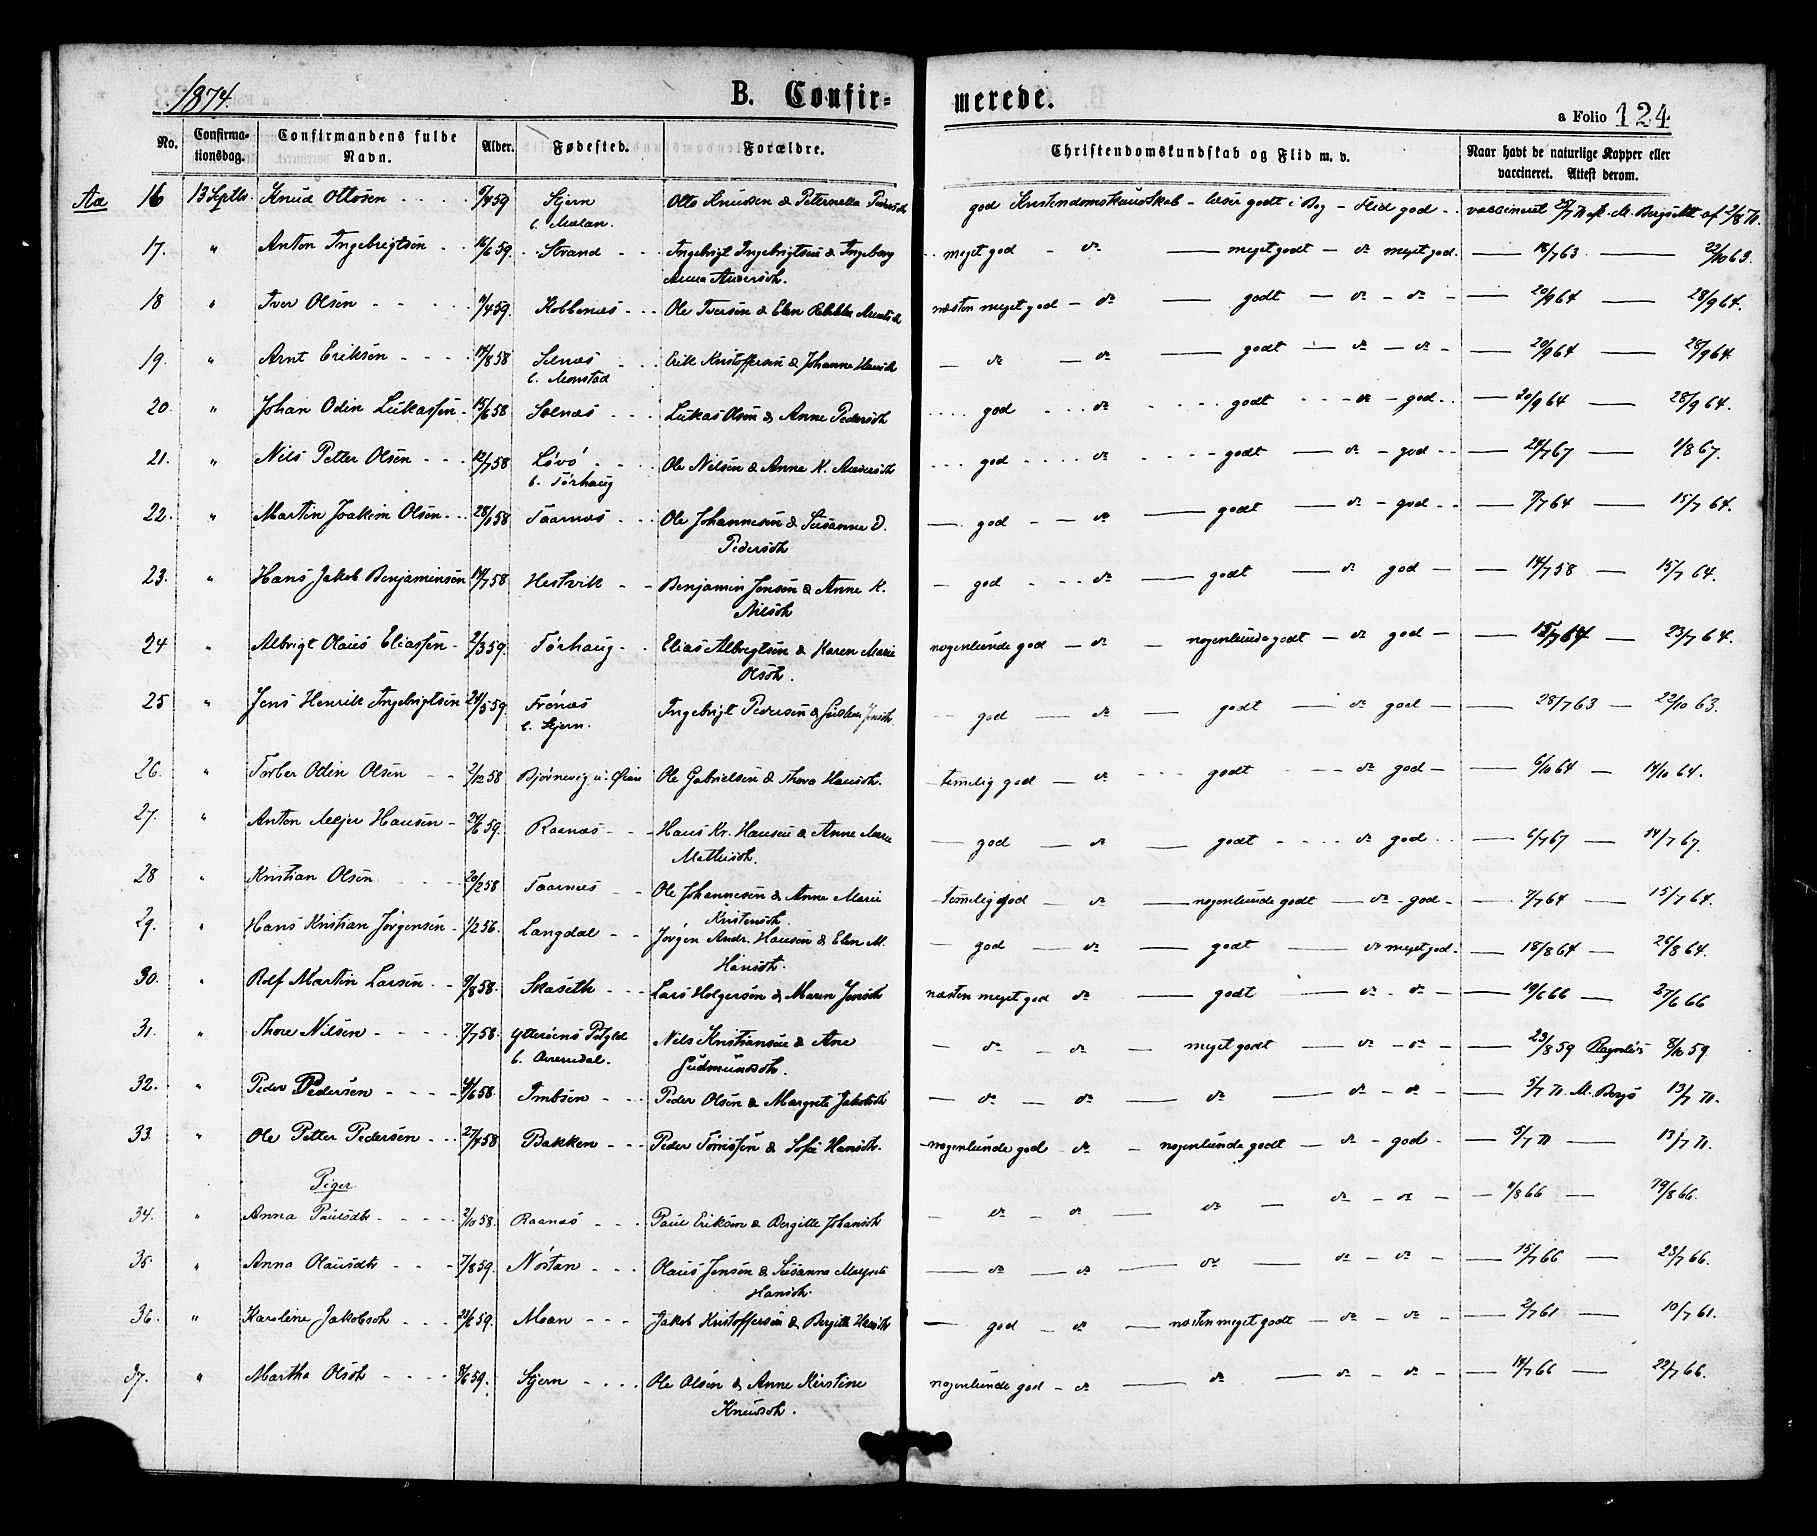 1874.
B. Confir-
merede.
a Folio 124
No. Confirma-tionsdag. Confirmandens fulde Navn. Alder. Fødested. Forældre. Christendomskundskab og Flid m. v. Naar havt de naturlige Kopper eller vaccineret. Attest derom.
Aa 16 13 Septb. Knud Ottosen 9/4 59 Stjern Otto Knudsen & Peternella Pedersdt god Kristendomskundskab - læser godt i Bog - Flid god vaccineret
17. " Anton Ingebrigtsen 16/6 59. Strand Ingebrigt Ingebrigtsen & Ingeborg meget god - do - meget godt - do meget god 18/7 63 - 22/10 63.
Anna Andersdt.
18 " Iver Olsen 9/4 59. Kobbenæs Ole Iversen & Elen Rebekka næsten meget god - do - godt - do - do - 20/9 64 - 28/9 64.
19. " Arnt Eriksen 14/8 58 Selnæs Erik Kristoffersen & Johanne Hansdt - do - do - godt - do - do - 20/9 64 - 28/9 64.
b. Monstad
20. " Johan Odin Lukassen 15/6 58 Selnæs Lukas Olsen & Anne Pedersdt god do godt - do - god 20/9 64 - 28/9 64.
21. " Nils Petter Olsen 12/7 58 Lövö Ole Nilsen & Anne K. Andersdt god do godt - do - god - 24/7 67 1/8 67.
b. Tørhaug
22. " Martin Joakim Olsen 28/1 58 Taarnæs Ole Johannesen & Susanne D. - god - do - godt - do - god - 7/7 64 - 15/7 64.
Pedersdt
23. " Hans Jakob Benjaminsen 14/7 58 Hestvik Benjamin Jensen & Anne K. - god - do - godt - do god - 14/7 58 - 15/7 64.
Nilsdt
24 " Albrigt Olaus Eliassen 2/3 59. Tørhaug Elias Albrigtsen & Karen Marie nogenlunde god - do - nogenlunde godt - do god - 15/7 64 - 23/7 64.
Olsdt.
25 " Jens Henrik Ingebrigtsen 24/5 59 Frönæs Ingebrigt Pedersen & Jensdt. - god - do - godt - do god - 28/7 63 - 22/10 63.
b. Stjern.
26. " Torber Odin Olsen 2/12 58 Bjørnevig u. Ole Gabrielsen & Thora Hansdt. temelig god - do godt - do god - 6/10 64 - 14/10 64.
27. " Anton Mejer Hansen 24/6 59. Raanæs Hans Kr. Hansen & Anne Marie - god - do - godt do god 6/7 67 - 14/7 67.
Mathisdt.
28 " Kristian Olsen 20/2 58 Taarnæs Ole Johannesen & Anne Marie temelig god - do - nogenlunde godt - do - god - 7/7 64 - 15/7 64.
Kristensdt.
29. " Hans Kristian Jørgensen 1/2 56. Langdal Jørgen Andr. Hansen & Elen M. - god - do - godt - do meget god - 18/8 64 - 26/8 64.
Hansdt.
30. " Rolf Martin Larsen 9/8 58. Skaseth Lars Holgersen & Maren Jensdt næsten meget god do - godt - do - do - 19/6 66 - 27/6 66
31. " Thore Nilsen 7/7 58. Nils Kristiansen & Ane - do - do - meget godt - do - do - 23/8 59 8/10 59
Gudmundsdt.
32. " Peder Pedersen 4/6 58. Imbsen Peder Olsen & Margrete Jakobsdt - do - do - do - do - do - 5/7 71. M. Bergs 13/7 71.
33. " Ole Petter Pedersen 27/4 58 Bakken Peder Tørrissen & Sofie Hansdt. nogenlunde god do - nogenlunde godt - do - god - 5/7 71 - 13/7 71.
Piger
34. " Anna Paulsdtr 2/10 58. Raanæs Paul Eriksen & Bergitte Johansdt - do - do - do - do - do - 9/8 66 - 19/8 66.
35. " Anna Olausdtr 7/8 59. Nöstan Olaus Jensen & Susanna Margrete - do - do - do - do - do - 15/7 66 - 23/7 66.
Hansdt.
36. " Karoline Jakobsdt 24/6 59. Moan Jakob Kristoffersen & Bergitte Hansdt - god - do - næsten meget godt - do - do - 2/7 61 - 10/7 61.
37. " Martha Olsdt 9/6 59. Stjern Ole Olsen & Anne Kirstine nogenlunde god - do - do - do - do - 14/7 66 - 22/7 66.
Knudsdt.